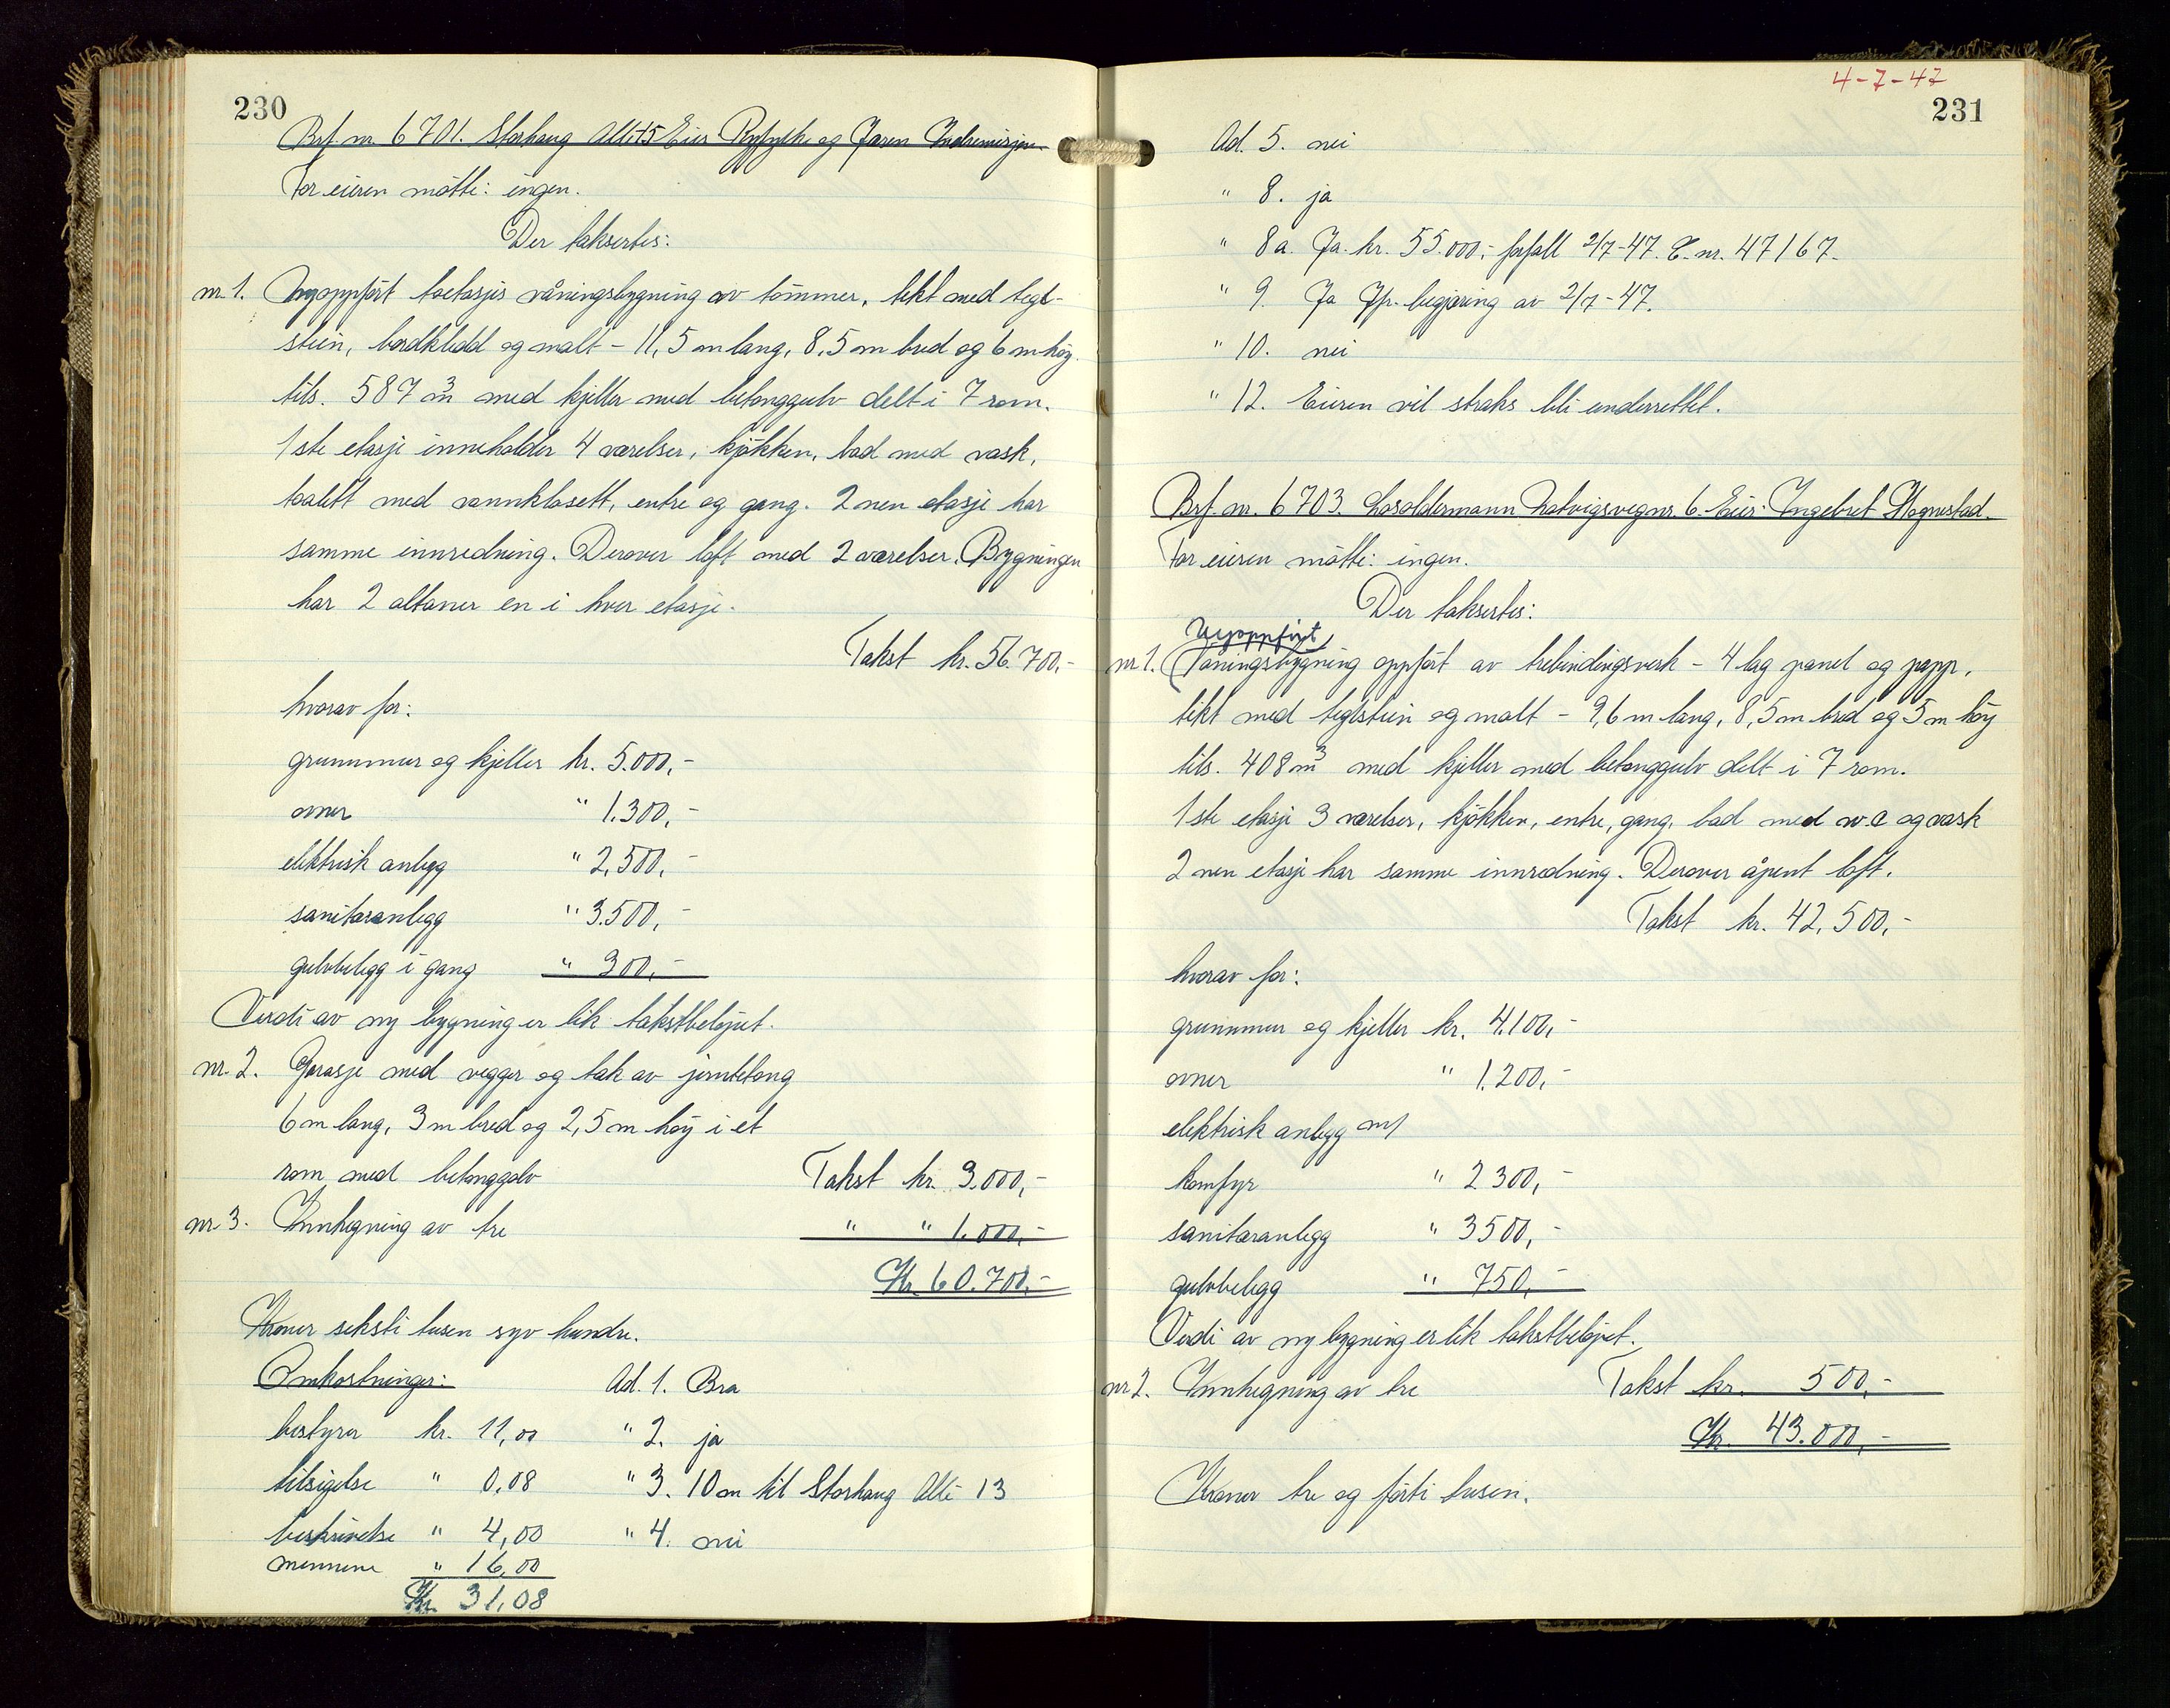 230
Brf. nr. 6701. Storhaug Allé 15 Eier Ryfylke og Jæren Indremisjon
For eieren møtte: ingen.
Der taksertes:
nr. 1. Nyoppført toetasjes våningsbygning av tømmer, tekt med tegl-
stein, bordkledd og malt - 11,5 m lang, 8,5 m bred og 6 m høy
tils. 587 m3 med kjeller med betonggulv delt i 7 rom.
1ste etasje inneholder 4 værelser, kjøkken, bad med vask,
toalett med vannklosett, entre og gang. 2nen etasje har
samme innredning. Derover loft med 2 værelser. Bygningen
har 2 altaner en i hver etasje.
Takst kr. 56.700,-
hvorav for:
grunnmur og kjeller kr. 5.000,-
ovner " 1.300,-
elektrisk anlegg " 2,500,-
sanitæranlegg " 3.500,-
gulvbelegg i gang " 300,-
Verdi av ny bygning er lik takstbeløpet.
nr. 2. Garasje med vegger og tak av jernbetong
6 m lang, 3 m bred og 2,5 m høy i et
rom med betonggolv Takst kr. 3.000,-
nr 3. Innhegning av tre " " 1.000,-
Kr. 60.700,-
Kroner seksti tusen syv hundre.
Omkostninger: Ad. 1. Bra
bestyrer kr. 11,00 " 2. ja
tilsigelse " 0,08 " 3. 10 m til Storhaug Allé 13
beskrivelse " 4,00 " 4. nei
mennene " 16,00
Kr. 31,08
4-7-47
231
Ad. 5. nei
" 8. ja
" 8a. Ja. kr. 55.000,- forfall 2/7-47. nr. 47167.
" 9. Ja Jfr. begjæring av 2/7-47.
" 10. nei
" 12. Eieren vil straks bli underrettet.
Brf. nr. 6703. Losoldermann Natvigsvegnr. 6. Eier: Ingebret Hognestad.
For eieren møtte: ingen.
Der taksertes:
Nyoppført
nr 1. Våningsbygning oppført av trebindingsverk - 4 lag panel og papp,
tekt med teglstein og malt - 9,6 m lang, 8,5 m bred og 5 m høy
tils. 408 m3 med kjeller med betonggulv delt i 7 rom.
1ste etasje 3 værelser, kjøkken, entre, gang, bad med w.c og vask
2nen etasje har samme innredning. Derover åpent loft.
Takst kr. 42,500,-
hvorav for:
grunnmur og kjeller kr. 4.100,-
ovner " 1.200,-
elektrisk anlegg m/
komfyr " 2300,-
sanitæranlegg " 3500,-
gulvbelegg " 750,-
Verdi av ny bygning er lik takstbeløpet.
nr 2. Innhegning av tre Takst kr. 500,-
Kr. 43.000,-
Kroner tre og førti tusen.